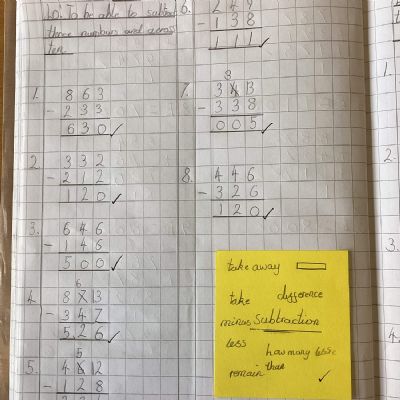 LO: To be able to subtract
three numbers and across
ten.
1. 863
- 233
630 ✓
2. 332
- 212
120 ✓
3. 646
- 146
500 ✓
6
4. 8 7 13
- 3 4 7
5 2 6 ✓
5
5. 4 6 12
- 1 2 8
6. 249
- 138
111 ✓
8
7. 343
- 338
005 ✓
8. 446
- 326
120 ✓
take away
take difference
minus subtraction
less how many less
remain than ✓
1.
2.
3.
4.